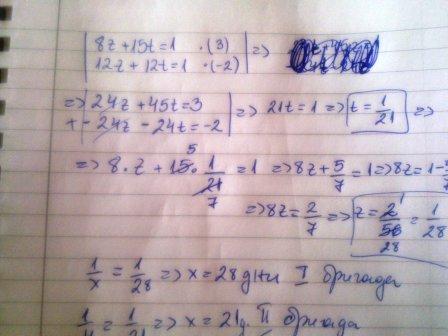 8z + 15t = 1 .(3) =>
12z + 12t = 1 .(-2)
=> 24z + 45t = 3 => 21t = 1 => t = 1/21 =>
+ - 24z - 24t = -2
=> 8.z + 15.1/21 = 1 => 8z + 5/7 = 1 => 8z = 1 -
5 7
=> 8z = 2/7 => z = 2/56 = 1/28
1 28
1/x = 1/28 => x = 28 дни I бригада
= 1/21 => x = 21 д. II бригада